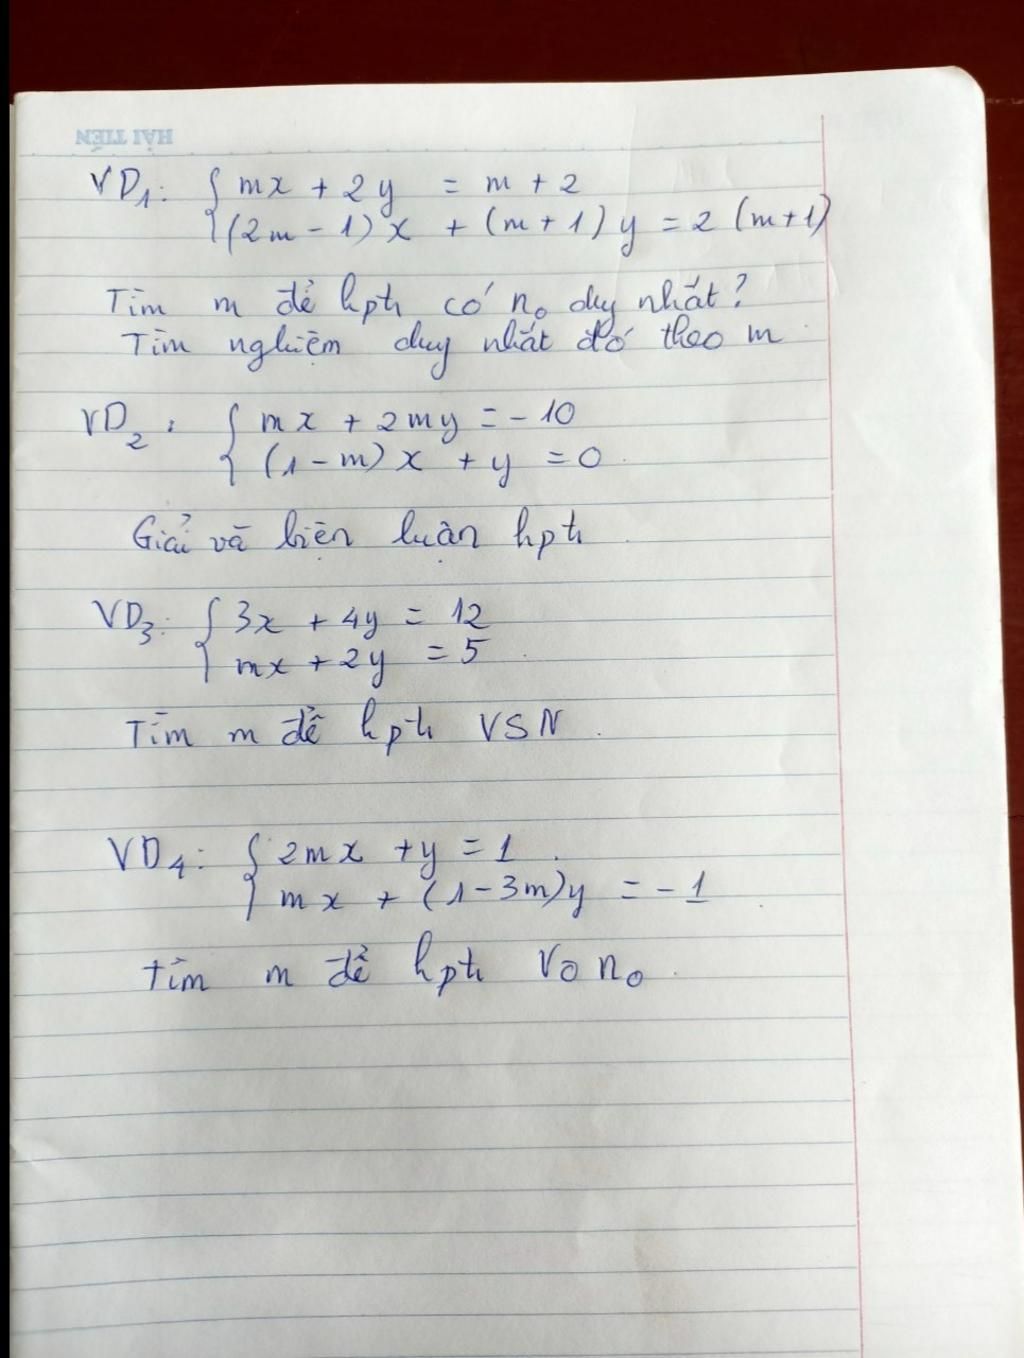 HẢI TIẾN
VD1: { mx + 2y = m + 2
(2m - 1)x + (m + 1)y = 2 (m+1)
Tìm m để hpth có no duy nhất?
Tìm nghiệm duy nhất đó theo m
VD2: { mx + 2my = - 10
(1 - m)x + y = 0.
Giải và biện luận hpth.
VD3: { 3x + 4y = 12
mx + 2y = 5.
Tìm m để hpth VSN.
VD4: { 2mx + y = 1.
mx + (1 - 3m)y = - 1.
tìm m để hpth Vo no.